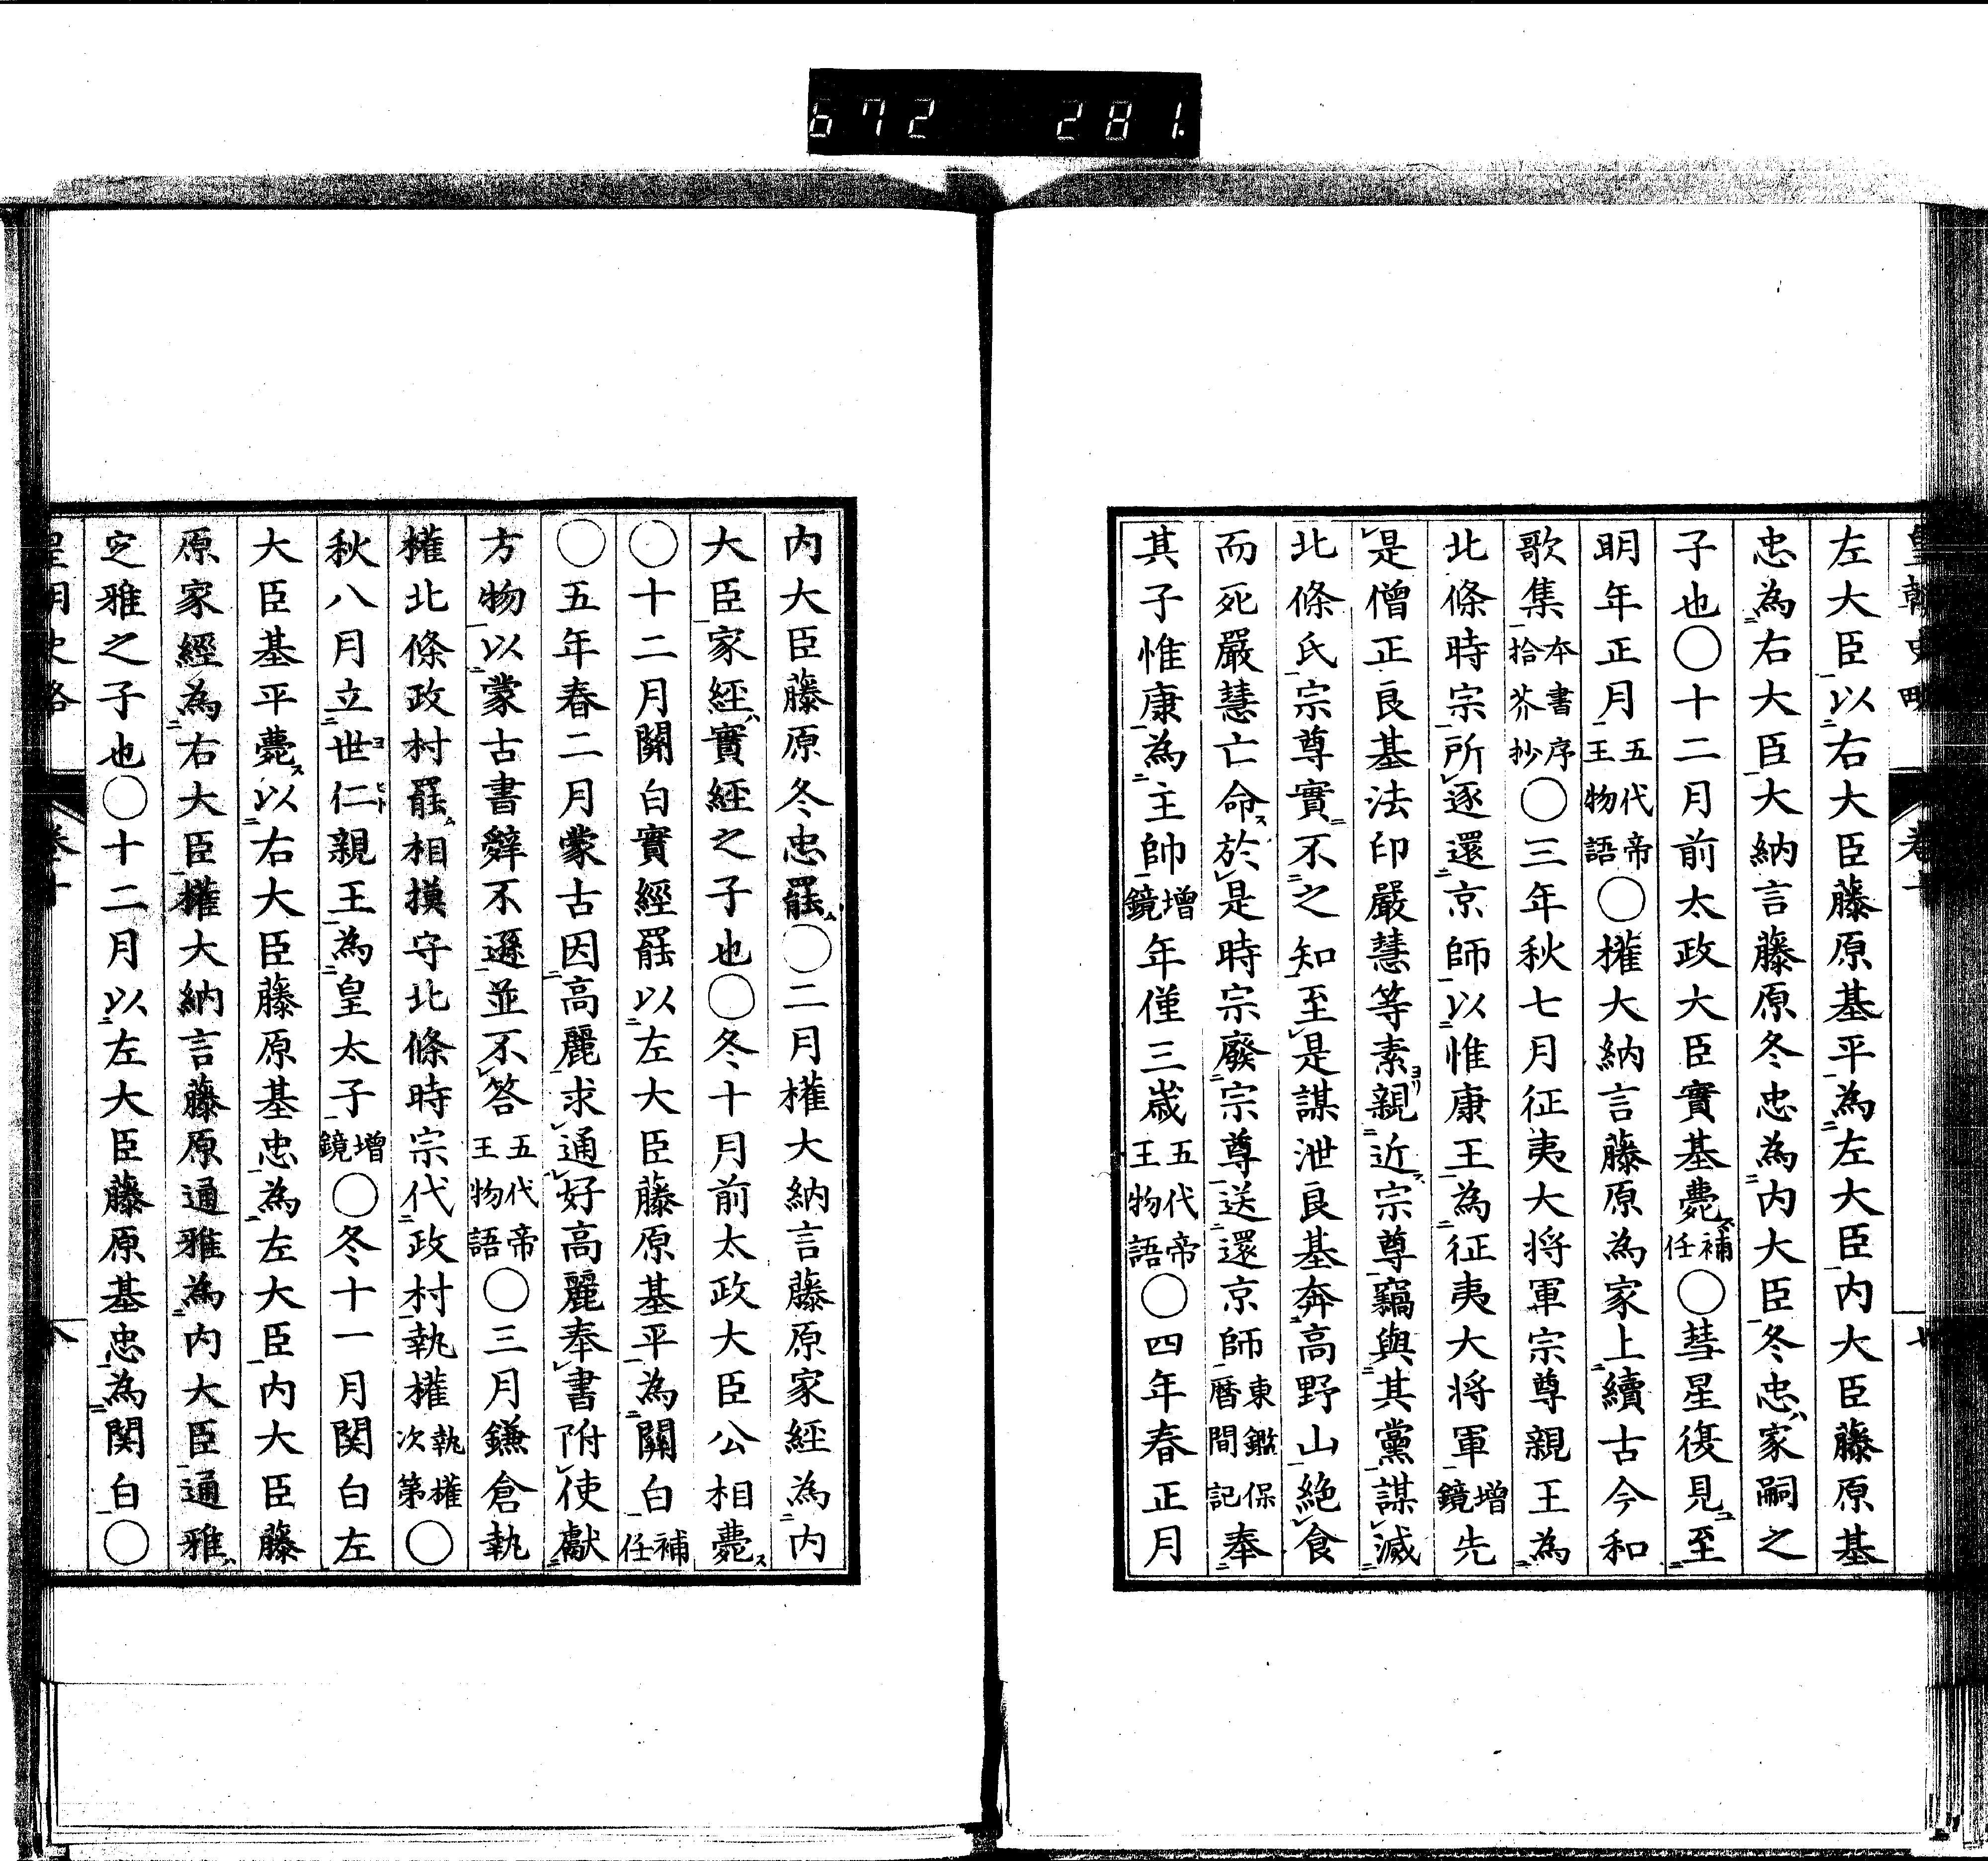 672 281
左大臣以右大臣藤原基平為左大臣内大臣藤原基
忠為右大臣大納言藤原冬忠為内大臣冬忠家嗣之
子也〇十二月前太政大臣實基薨補任〇彗星復見至
明年正月五代帝王物語〇權大納言藤原為家上續古今和
歌集本書序拾芥抄〇三年秋七月征夷大将軍宗尊親王為
北條時宗所逐還京師以惟康王為征夷大将軍增鏡先
是僧正良基法印嚴慧等素親近宗尊竊與其黨謀滅
北條氏宗尊實不之知至是謀泄良基奔高野山絶食
而死嚴慧亡命於是時宗廢宗尊送還京師東鑑保曆間記奉
其子惟康為主帥增鏡年僅三歳五代帝王物語〇四年春正月
内大臣藤原冬忠罷〇二月權大納言藤原家經為内
大臣家經實經之子也〇冬十月前太政大臣公相薨
〇十二月關白實經罷以左大臣藤原基平為關白補任
〇五年春二月蒙古因高麗求通好高麗奉書附使獻
方物以蒙古書辭不遜並不答五代帝王物語〇三月鎌倉執
權北條政村罷相摸守北條時宗代政村執權執權次第〇
秋八月立世仁親王為皇太子增鏡〇冬十一月関白左
大臣基平薨以右大臣藤原基忠為左大臣内大臣藤
原家經為右大臣權大納言藤原通雅為内大臣通雅
定雅之子也〇十二月以左大臣藤原基忠為関白〇